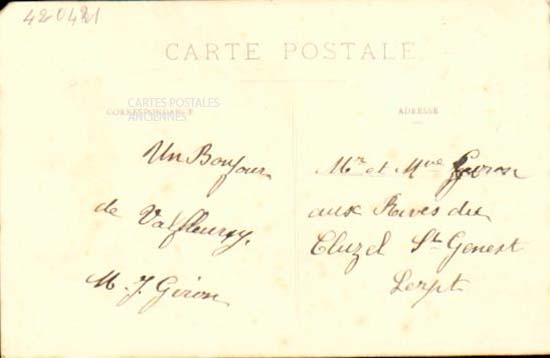 420421
CARTE POSTALE
CARTES POSTALES
ANCIENNES
CORRESPONDANCE
ADRESSE
Un Bonjour
de Valfleury,
M. J. Giron
Mr et Mme Giron
aux Raves du
Cluzel St Genest
Lerpt